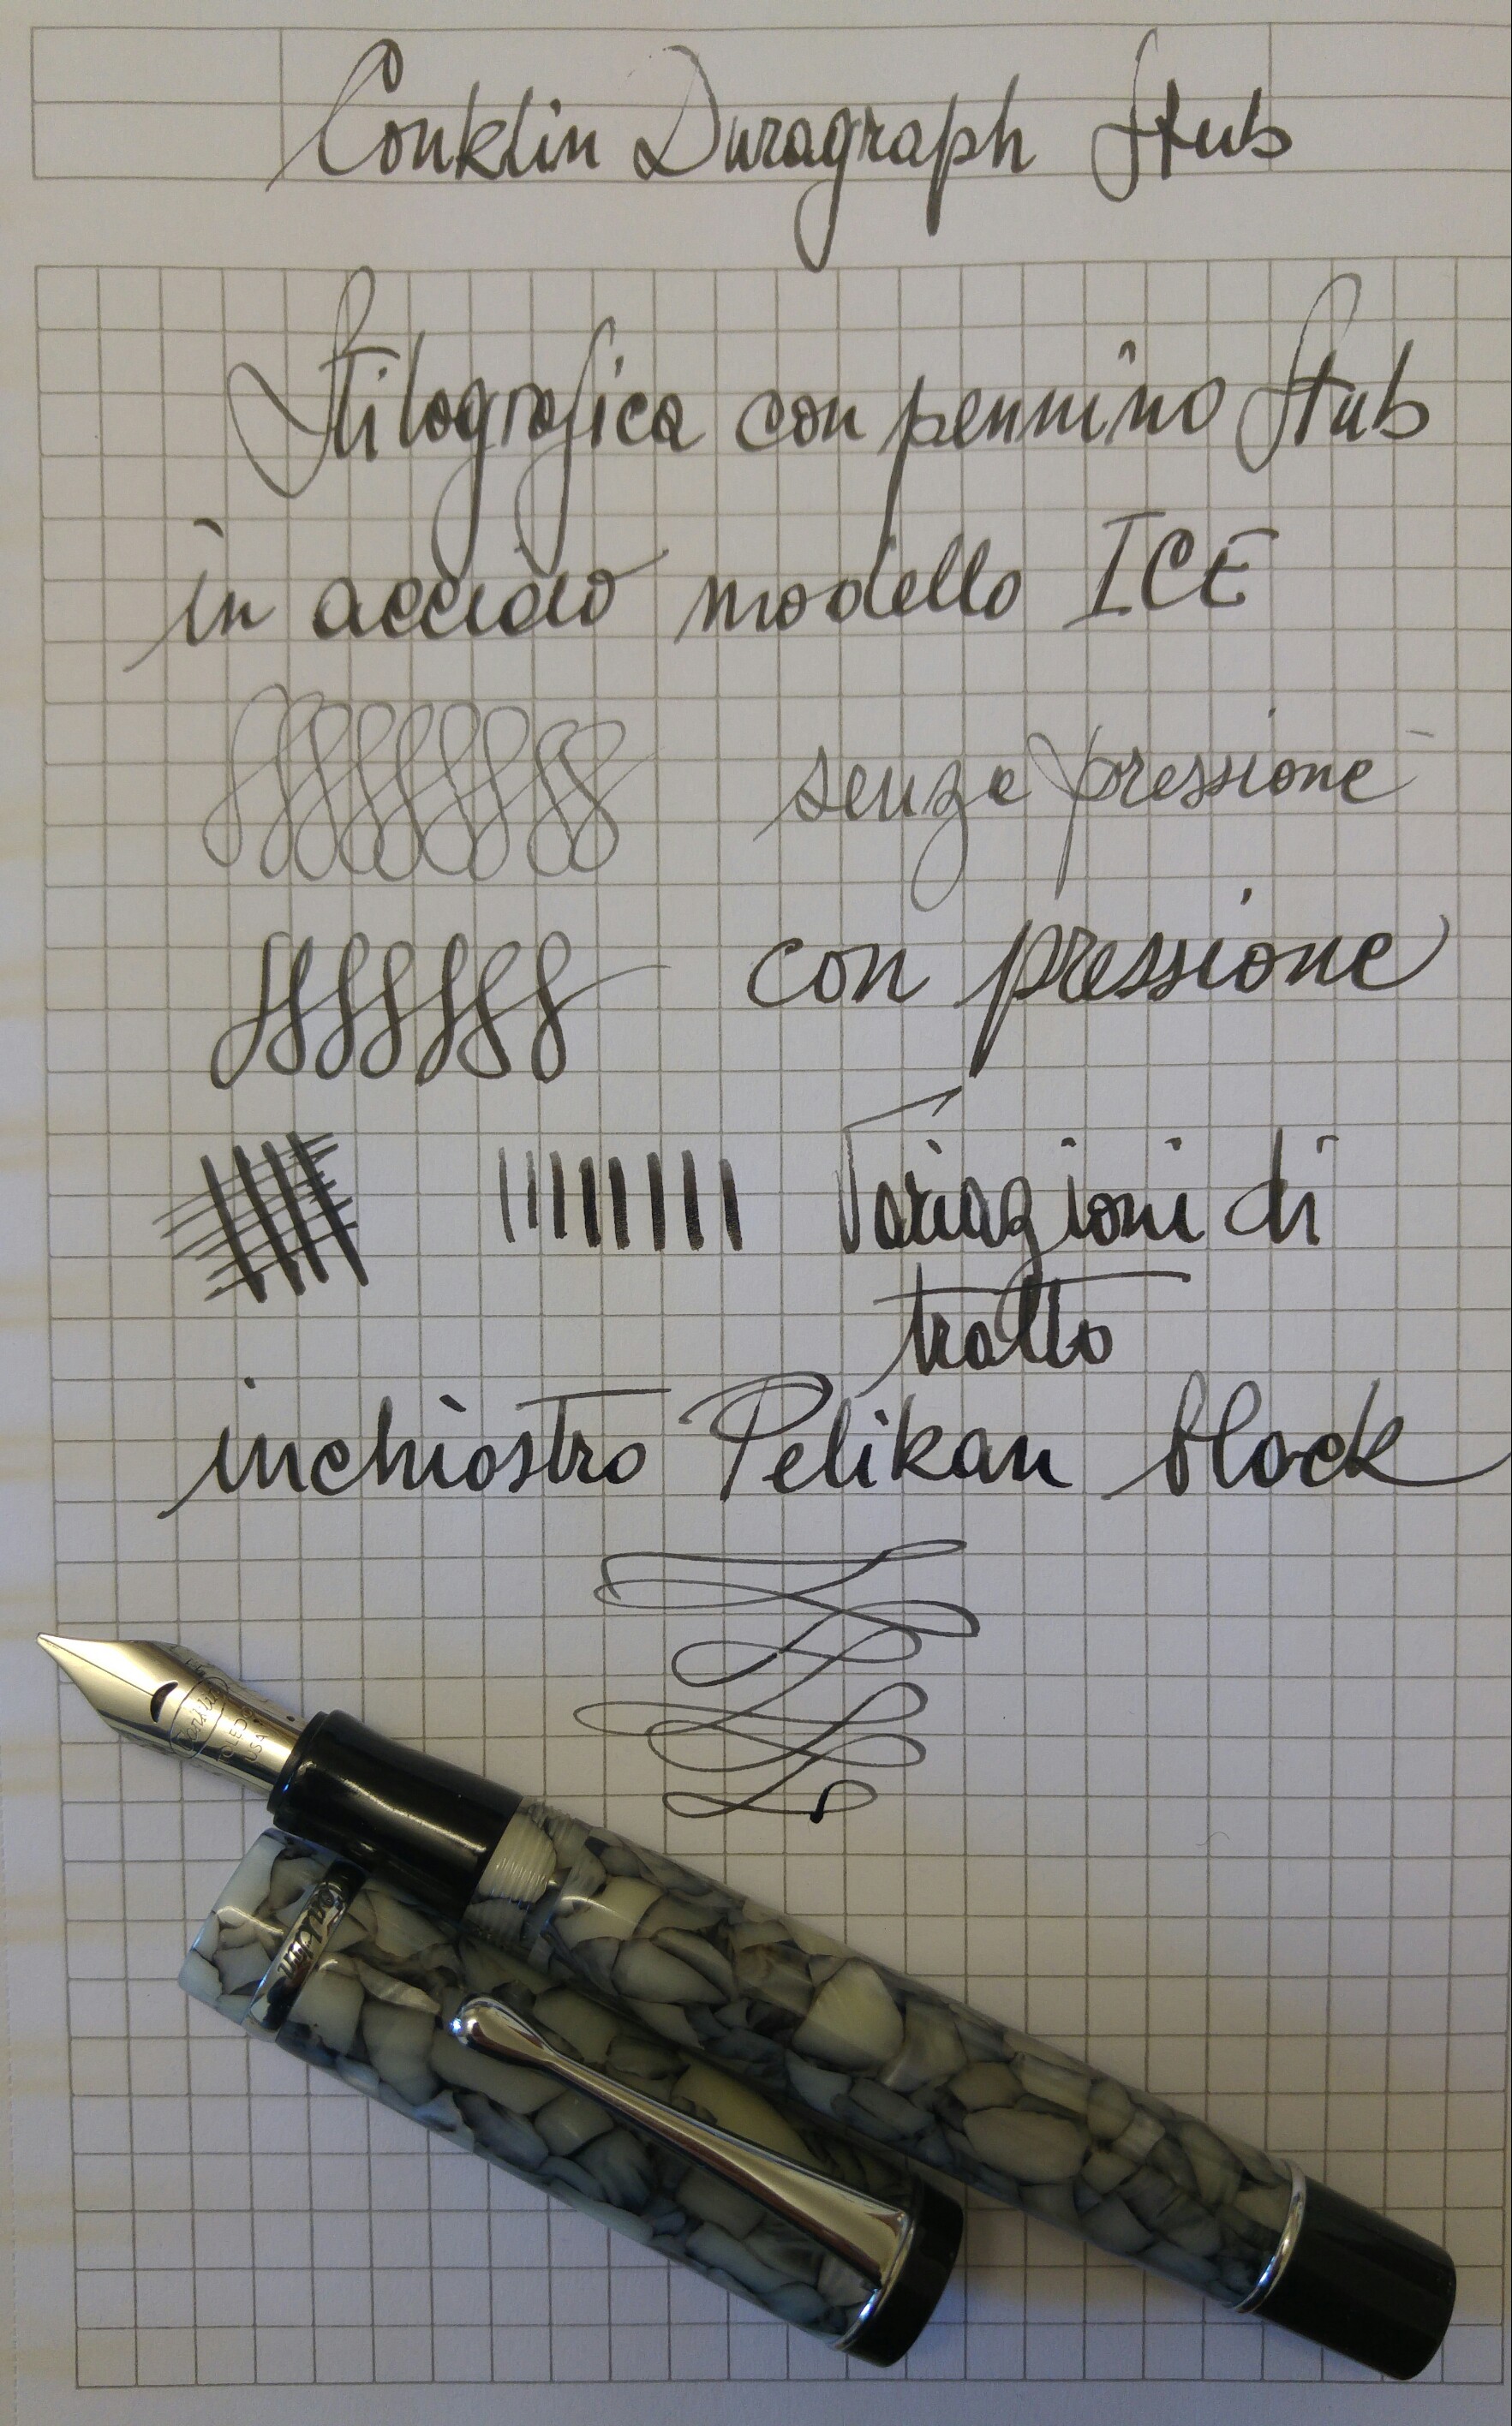 Conklin Duragraph Stub
Stilografica con pennino Stub
in acciaio modello ICE
senza pressione
con pressione
Variazioni di
tratto
inchiostro Pelikan black
Conklin
TOLEDO
USA
Conklin